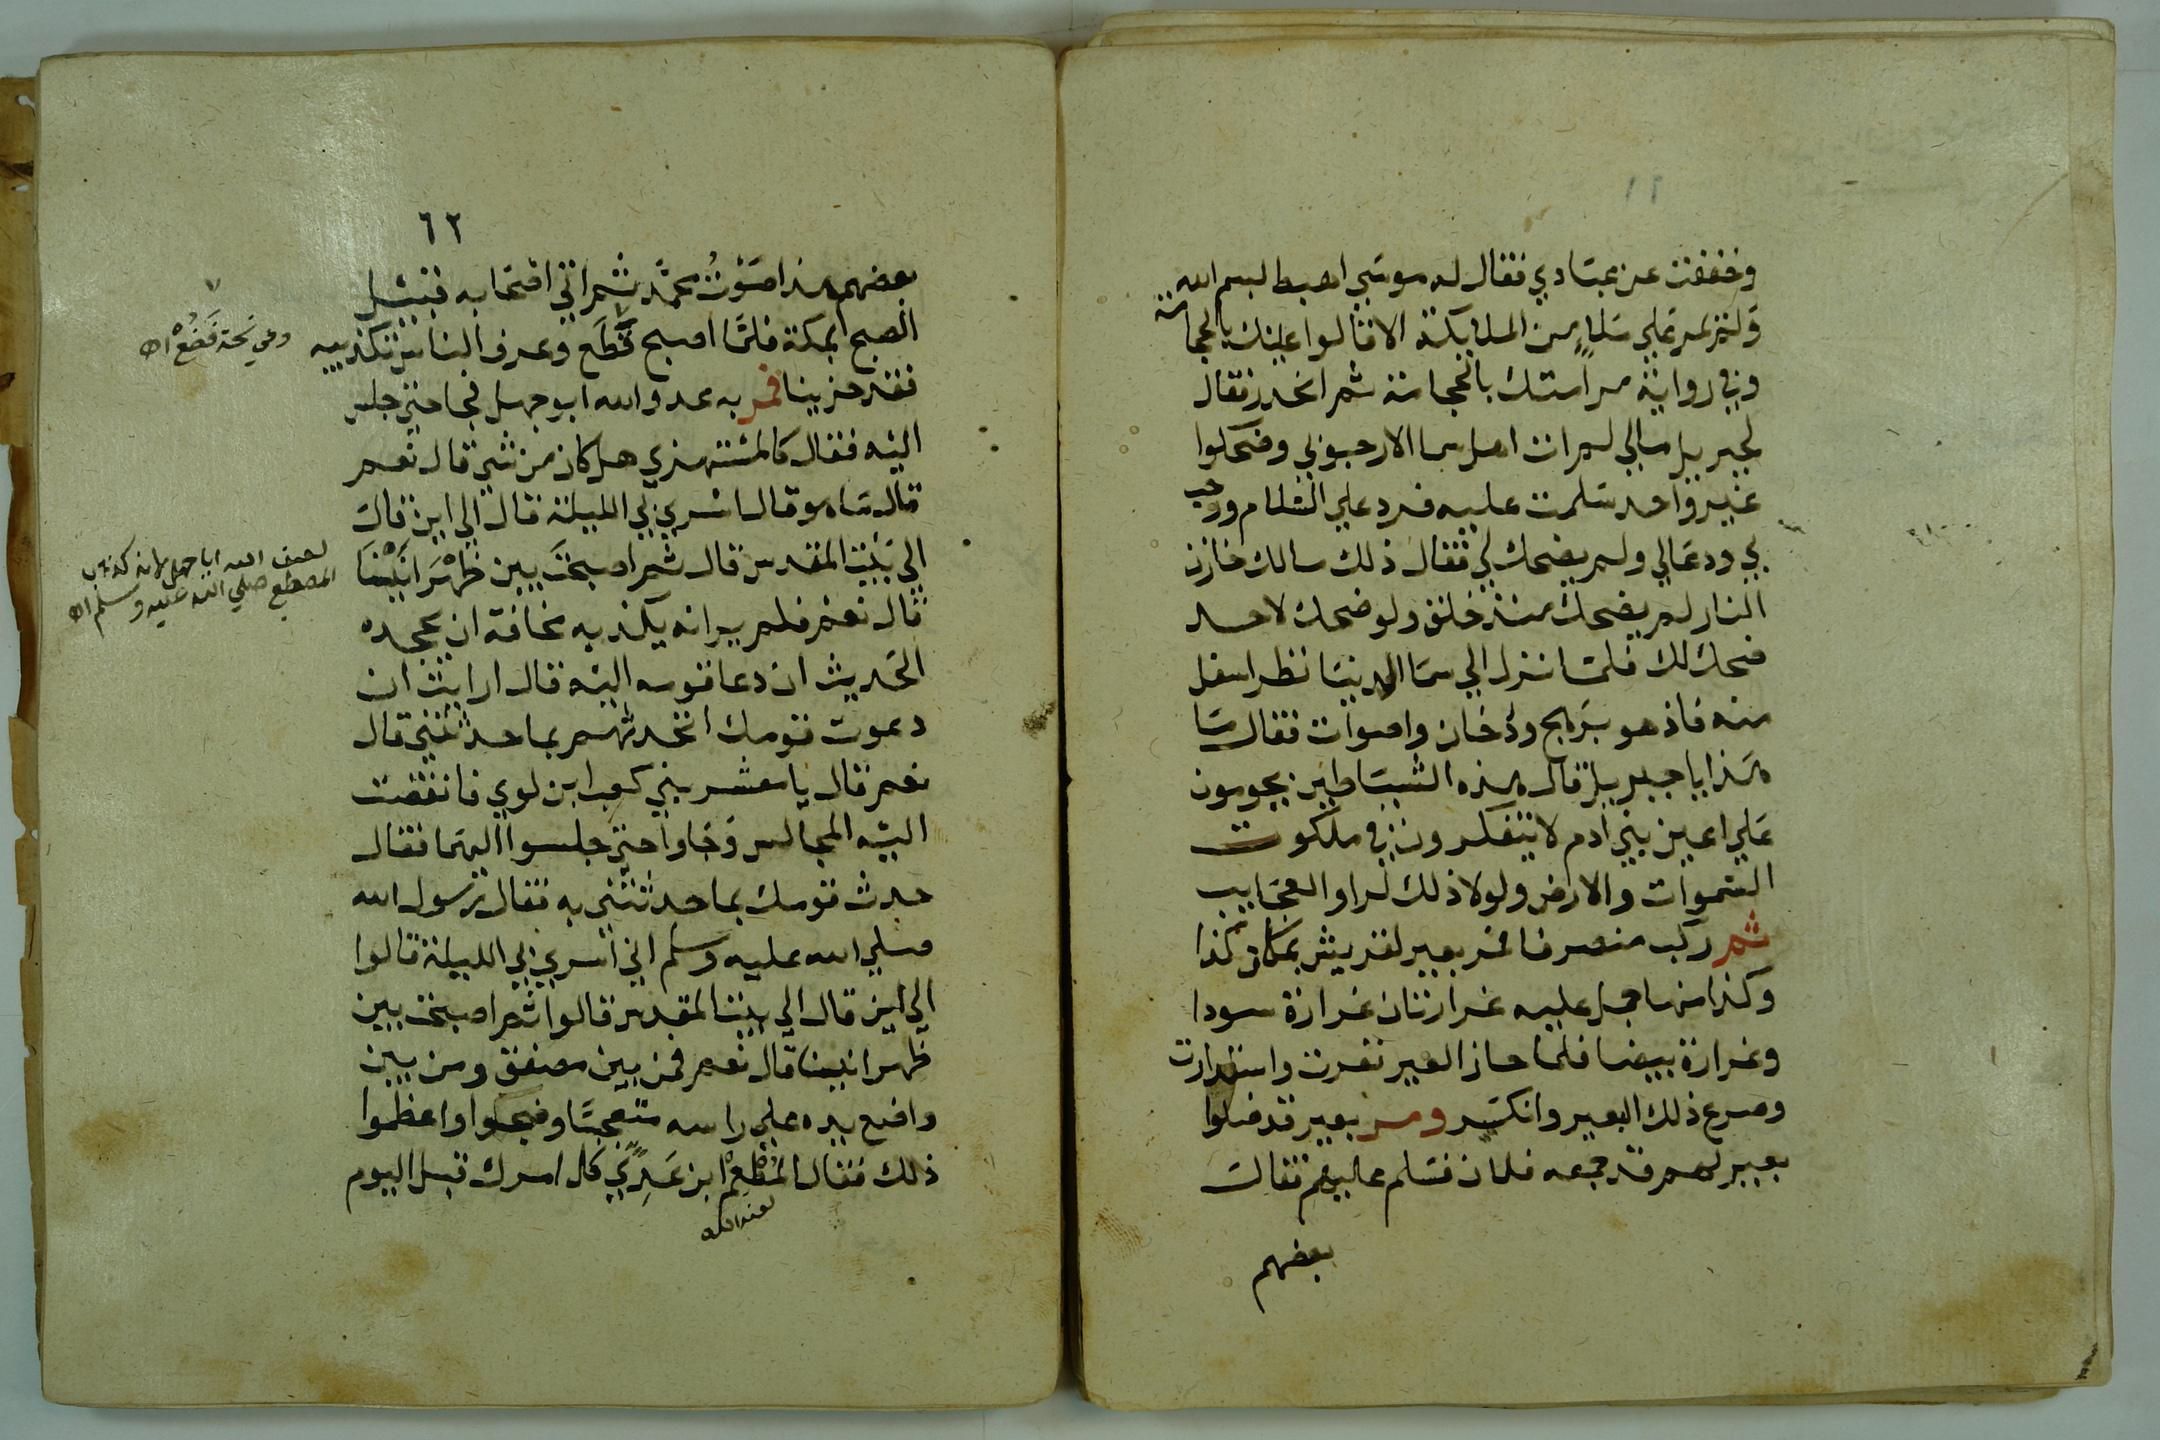 ٦١
وخففت عن عبادي فقال له موسي اهبط بسم الله
ولم يمر علي ملا من الملايكة الا قالوا عليك بالحجامة
وفي رواية مر امتك بالحجامة ثم انحدر فقال
لجبريل مالي لم ات اهل سما الا رحبوا بي وضحكوا
غير واحد سلمت عليه فرد علي السلام ورحب
بي ودعا لي ولم يضحك لي فقال ذلك مالك خازن
النار لم يضحك منذ خلق ولو ضحك لاحد
ضحك لك فلما نزل الي سما الدنيا نظر اسفل
منه فاذ هو برهج ودخان واصوات فقال ما
هذا يا جبريل قال هذه الشياطين يحومون
علي اعين بني ادم لا يتفكرون في ملكوت
السموات والارض ولولا ذلك لراوا العجايب
ثم ركب منصرفا فمر بعير لقريش بمكان كذا
وكذا منها جمل عليه غرارتان غرارة سودا
وغرارة بيضا فلما حاز العير نفرت واستدارت
وصرع ذلك البعير وانكسر ومر بعير قد ضلوا
بعير لهم قد جمعه فلان فسلم عليهم فقال
بعضهم
٦٢
بعضهم هذا صوت محمد ثم اتي اصحابه قبيل
الصبح بمكة فلما اصبح قطع وعرف الناس تكذبيه
فقد حزينا فمر به عدو الله ابو جهل فجا حتي جلس
اليه فقال كالمستهزي هل كان من شي قال نعم
قال ما هو قال اسري بي الليلة قال الي اين قال
الي بيت المقدس قال ثم اصبحت بين ظهرانينا
قال نعم فلم ير انه يكذبه مخافة ان يجحده
الحديث ان دعا قومه اليه قال ارايت ان
دعوت قومك اتحدثهم بما حدثتني قال
نعم قال يا معشر بني كعب ابن لوي فانفضت
اليه المجالس وجاوا حتي جلسوا اليهما فقال
حدث قومك بما حدثتني به فقال رسول الله
صلي الله عليه وسلم اني اسري بي الليلة قالوا
الي اين قال الي بيت المقدس قالوا ثم اصبحت بين
ظهرانينا قال نعم فمن بين مصفق ومن بين
واضع يده علي راسه متعجبا وضجوا واعظموا
ذلك فقال المطعم ابن عدي كل امرك قبل اليوم
لعنه الله
وفي نسخة فضع اه
لعن الله ابا جهل لانه كذب
المصطفي صلي الله عليه وسلم اه